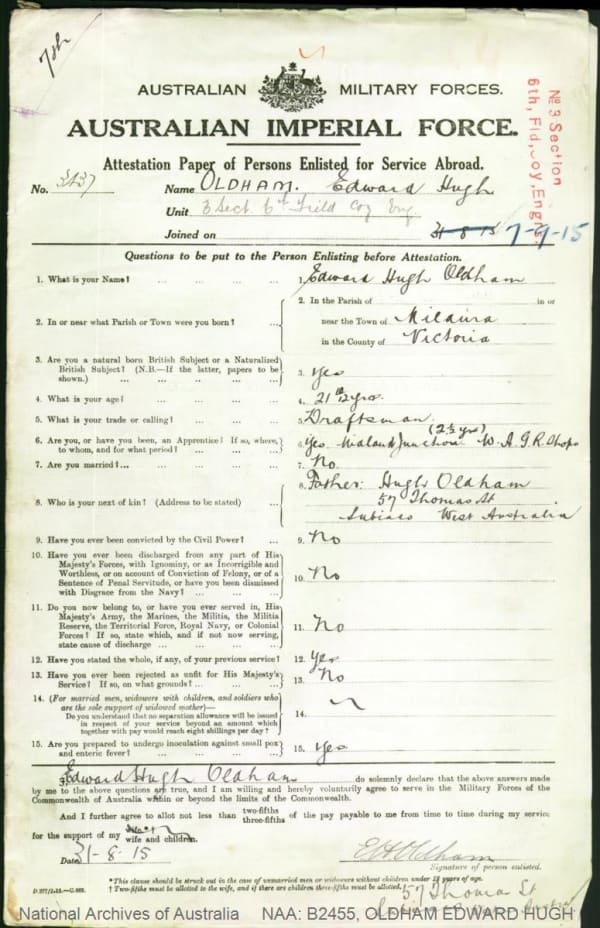 7th
AUSTRALIAN MILITARY FORCES.
AUSTRALIAN IMPERIAL FORCE.
Nº 3 Section
6th, Fld, Coy, Engrs.
Attestation Paper of Persons Enlisted for Service Abroad.
No. 3437 Name OLDHAM. Edward Hugh
Unit 3 Sect. 6th Field Coy Eng
Joined on 31-8-15 7-9-15
Questions to be put to the Person Enlisting before Attestation.
1. What is your Name? ... ... ... ... 1. Edward Hugh Oldham
2. In or near what Parish or Town were you born? ... 2. In the Parish of in or
near the Town of Mildura
in the County of Victoria
3. Are you a natural born British Subject or a Naturalized
British Subject? (N.B.—If the latter, papers to be
shown.) ... ... ... ... ... 3. Yes
4. What is your age? ... ... ... ... 4. 21 yrs.
5. What is your trade or calling? ... ... ... 5. Draftsman
6. Are you, or have you been, an Apprentice? If so, where,
to whom, and for what period? ... ... ... 6. Yes Midland Junction W.A.G.R. Shops (2½ yrs)
7. Are you married?... ... ... ... ... 7. No.
8. Who is your next of kin? (Address to be stated) ... 8. Father: Hugh Oldham
57 Thomas St
Subiaco West Australia
9. Have you ever been convicted by the Civil Power? ... 9. No
10. Have you ever been discharged from any part of His
Majesty's Forces, with Ignominy, or as Incorrigible and
Worthless, or on account of Conviction of Felony, or of a
Sentence of Penal Servitude, or have you been dismissed
with Disgrace from the Navy? ... ... ... 10. No
11. Do you now belong to, or have you ever served in, His
Majesty's Army, the Marines, the Militia, the Militia
Reserve, the Territorial Force, Royal Navy, or Colonial
Forces? If so, state which, and if not now serving,
state cause of discharge ... ... ... ... 11. No
12. Have you stated the whole, if any, of your previous service? 12. Yes
13. Have you ever been rejected as unfit for His Majesty's
Service? If so, on what grounds? ... ... ... 13. No
14. (For married men, widowers with children, and soldiers who
are the sole support of widowed mother)—
Do you understand that no separation allowance will be issued
in respect of your service beyond an amount which
together with pay would reach eight shillings per day? 14.
15. Are you prepared to undergo inoculation against small pox
and enteric fever? ... ... ... ... 15. Yes
I, Edward Hugh Oldham do solemnly declare that the above answers made
by me to the above questions are true, and I am willing and hereby voluntarily agree to serve in the Military Forces of the
Commonwealth of Australia within or beyond the limits of the Commonwealth.
*And I further agree to allot not less than two-fifths three-fifths of the pay payable to me from time to time during my service
for the support of my wife wife and children.
Date 31-8-15 E H Oldham
Signature of person enlisted.
*This clause should be struck out in the case of unmarried men or widowers without children under 18 years of age.
† Two-fifths must be allotted to the wife, and if there are children three-fifths must be allotted.
57 Thomas St
National Archives of Australia NAA: B2455, OLDHAM EDWARD HUGH